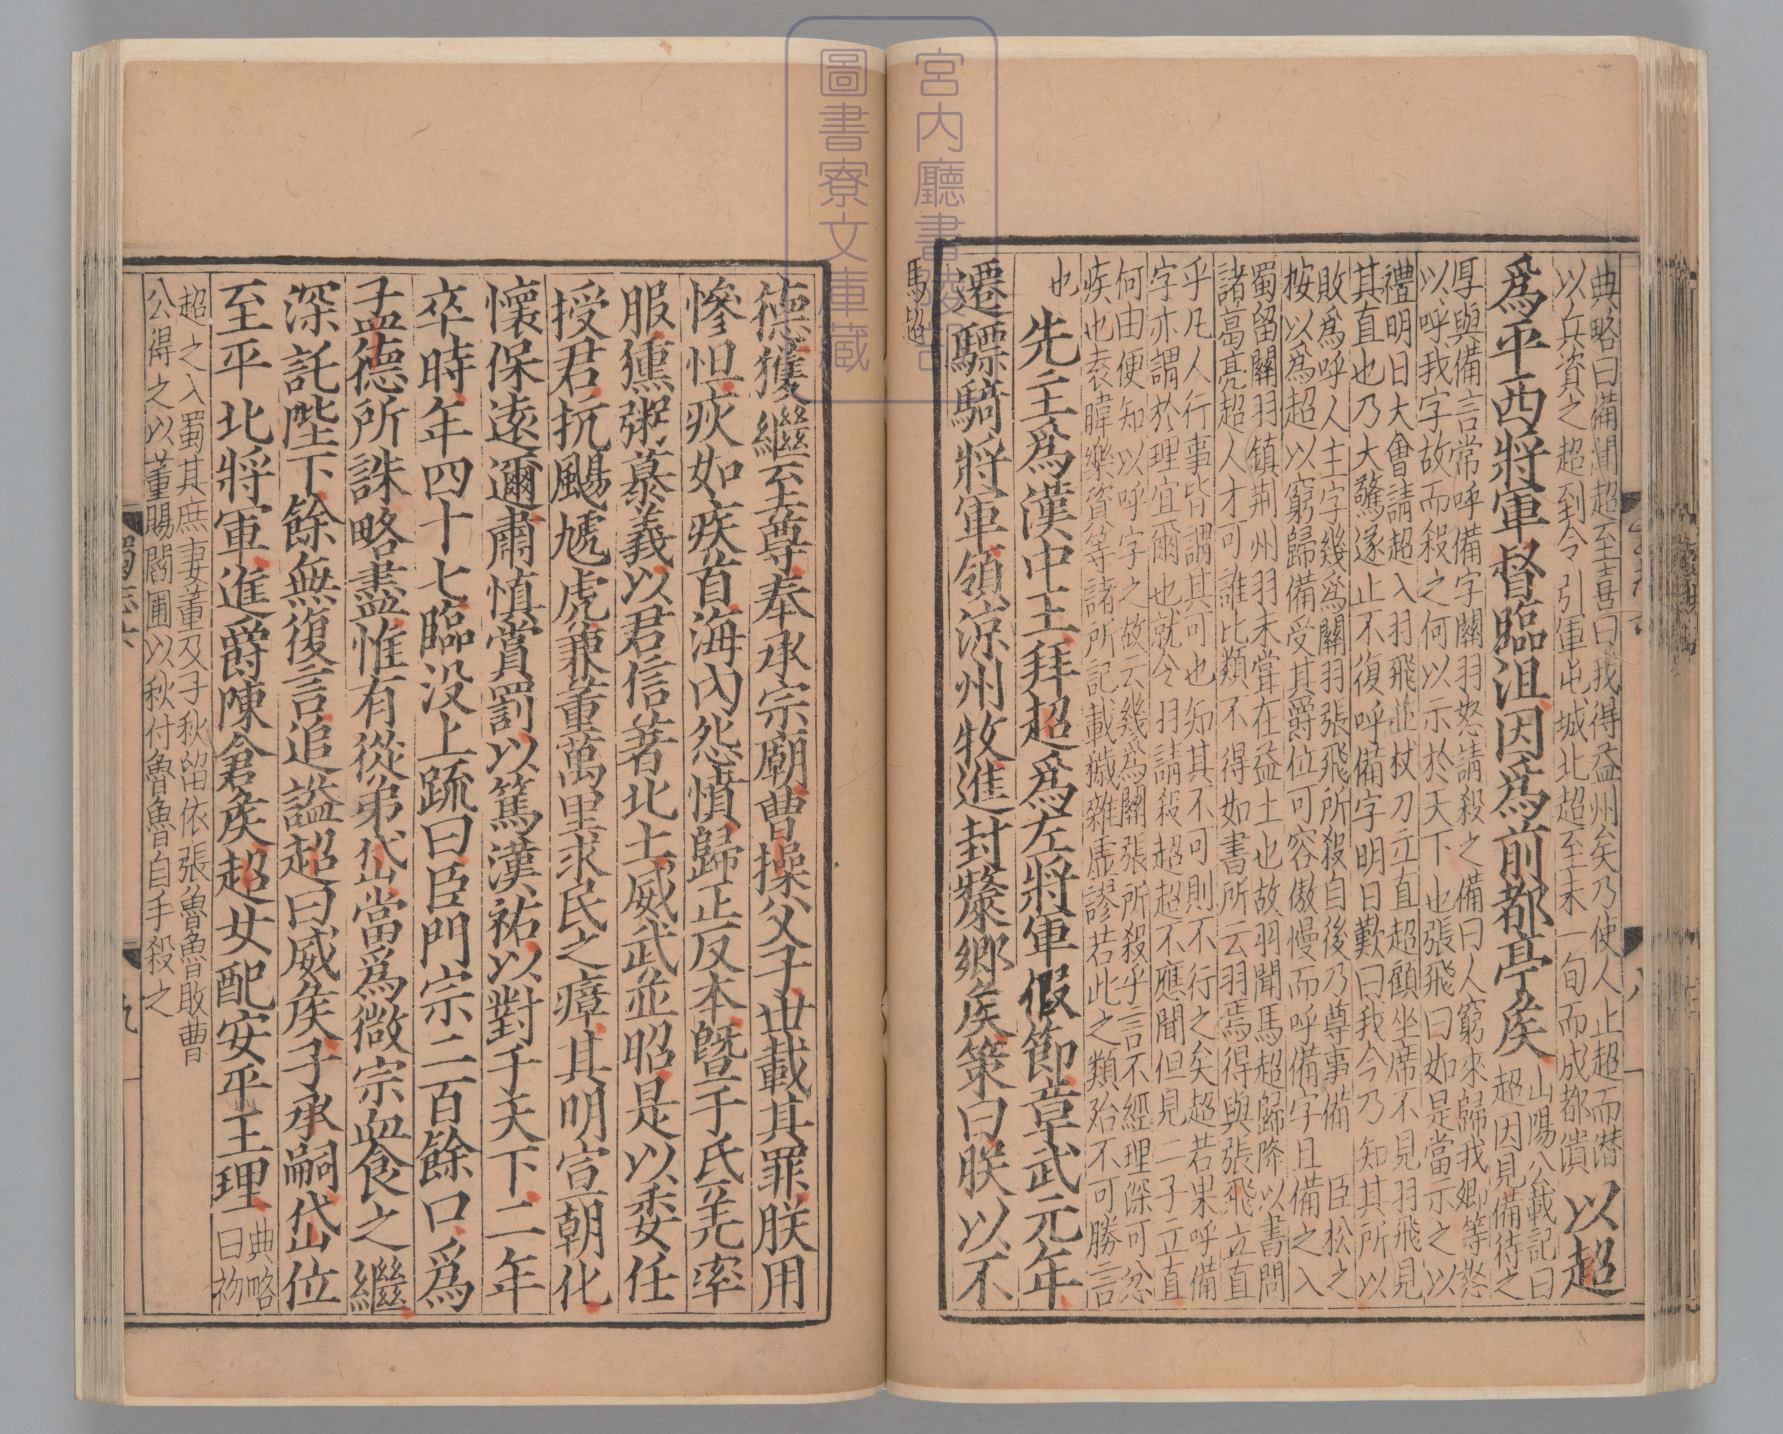 典略曰備聞超至喜曰我得益州矣乃使人止超而潜
以兵資之超到令引軍屯城北超至未一旬而成都潰
以超
爲平西將軍督臨沮因爲前都亭侯
山陽公載記曰
超因見備待之
厚與備言常呼備字關羽怒請殺之備曰人窮來歸我卿等怒
以呼我字故而殺之何以示於天下也張飛曰如是當示之以
禮明日大會請超入羽飛並杖刀立直超顧坐席不見羽飛見
其直也乃大驚遂止不復呼備字明日歎曰我今乃知其所以
敗爲呼人主字幾爲關羽張飛所殺自後乃尊事備 臣松之
按以爲超以窮歸備受其爵位可容傲慢而呼備字且備之入
蜀留關羽鎮荆州羽未甞在益土也故羽聞馬超歸降以書問
諸葛亮超人才可誰比類不得如書所云羽焉得與張飛立直
乎凡人行事皆謂其可也知其不可則不行之矣超若果呼備
字亦謂於理宜爾也就令羽請殺超超不應聞但見二子立直
何由便知以呼字之故云幾爲關張所殺乎言不經理深可忿
疾也袁暐樂資等諸所記載穢雜虛謬若此之類殆不可勝言
也
先主爲漢中王拜超爲左將軍假節章武元年
遷驃騎將軍領涼州牧進封斄鄉侯策曰朕以不
馬超
德獲繼至尊奉承宗廟曹操父子世載其罪朕用
慘怛疢如疾首海內怨憤歸正反本曁于氐羌率
服獯粥慕義以君信著北土威武並昭是以委任
授君抗颺虓虎兼董萬里求民之瘼其明宣朝化
懷保遠邇肅慎賞罰以篤漢祐以對于天下二年
卒時年四十七臨没上疏曰臣門宗二百餘口爲
孟德所誅略盡惟有從弟岱當爲微宗血食之繼
深託陛下餘無復言追謚超曰威侯子承嗣岱位
至平北將軍進爵陳倉侯超女配安平王理
典略
曰初
超之入蜀其庶妻董及子秋留依張魯魯敗曹
公得之以董賜閻圃以秋付魯魯自手殺之
蜀志六
九
宮内廳書陵部
圖書寮文庫藏